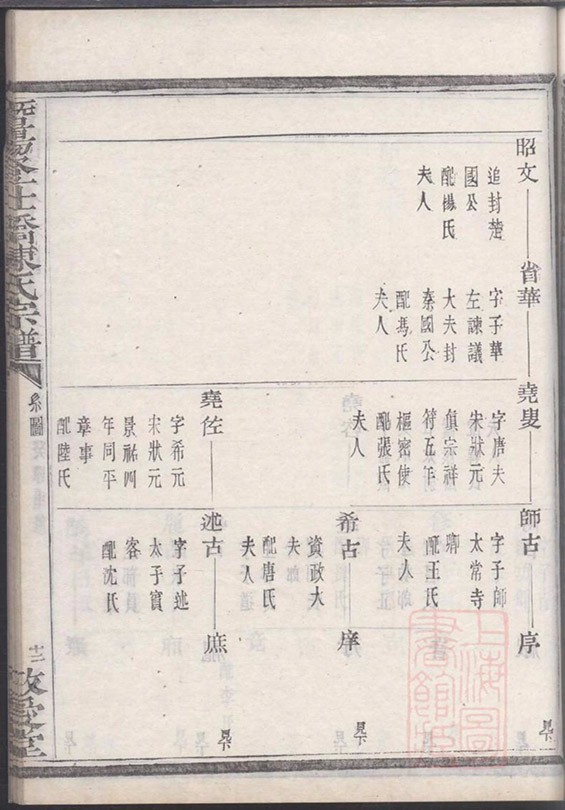 昭文
追封楚
國公
配楊氏
夫人
省華
字子華
左諫議
大夫封
秦國公
配馮氏
夫人
堯叟
字唐夫
宋狀元
真宗祥
符五年
樞密使
配張氏
夫人
師古
字子師
太常寺
卿
配王氏
夫人
序
昂
希古
資政大
夫
配唐氏
夫人
庠
昂
堯佐
字希元
宋狀元
景祐四
年同平
章事
配陸氏
述古
字子述
太子賓
客
配沈氏
庶
昂
上海圖
書館藏
陳氏宗譜
系圖
十二
敬愛堂